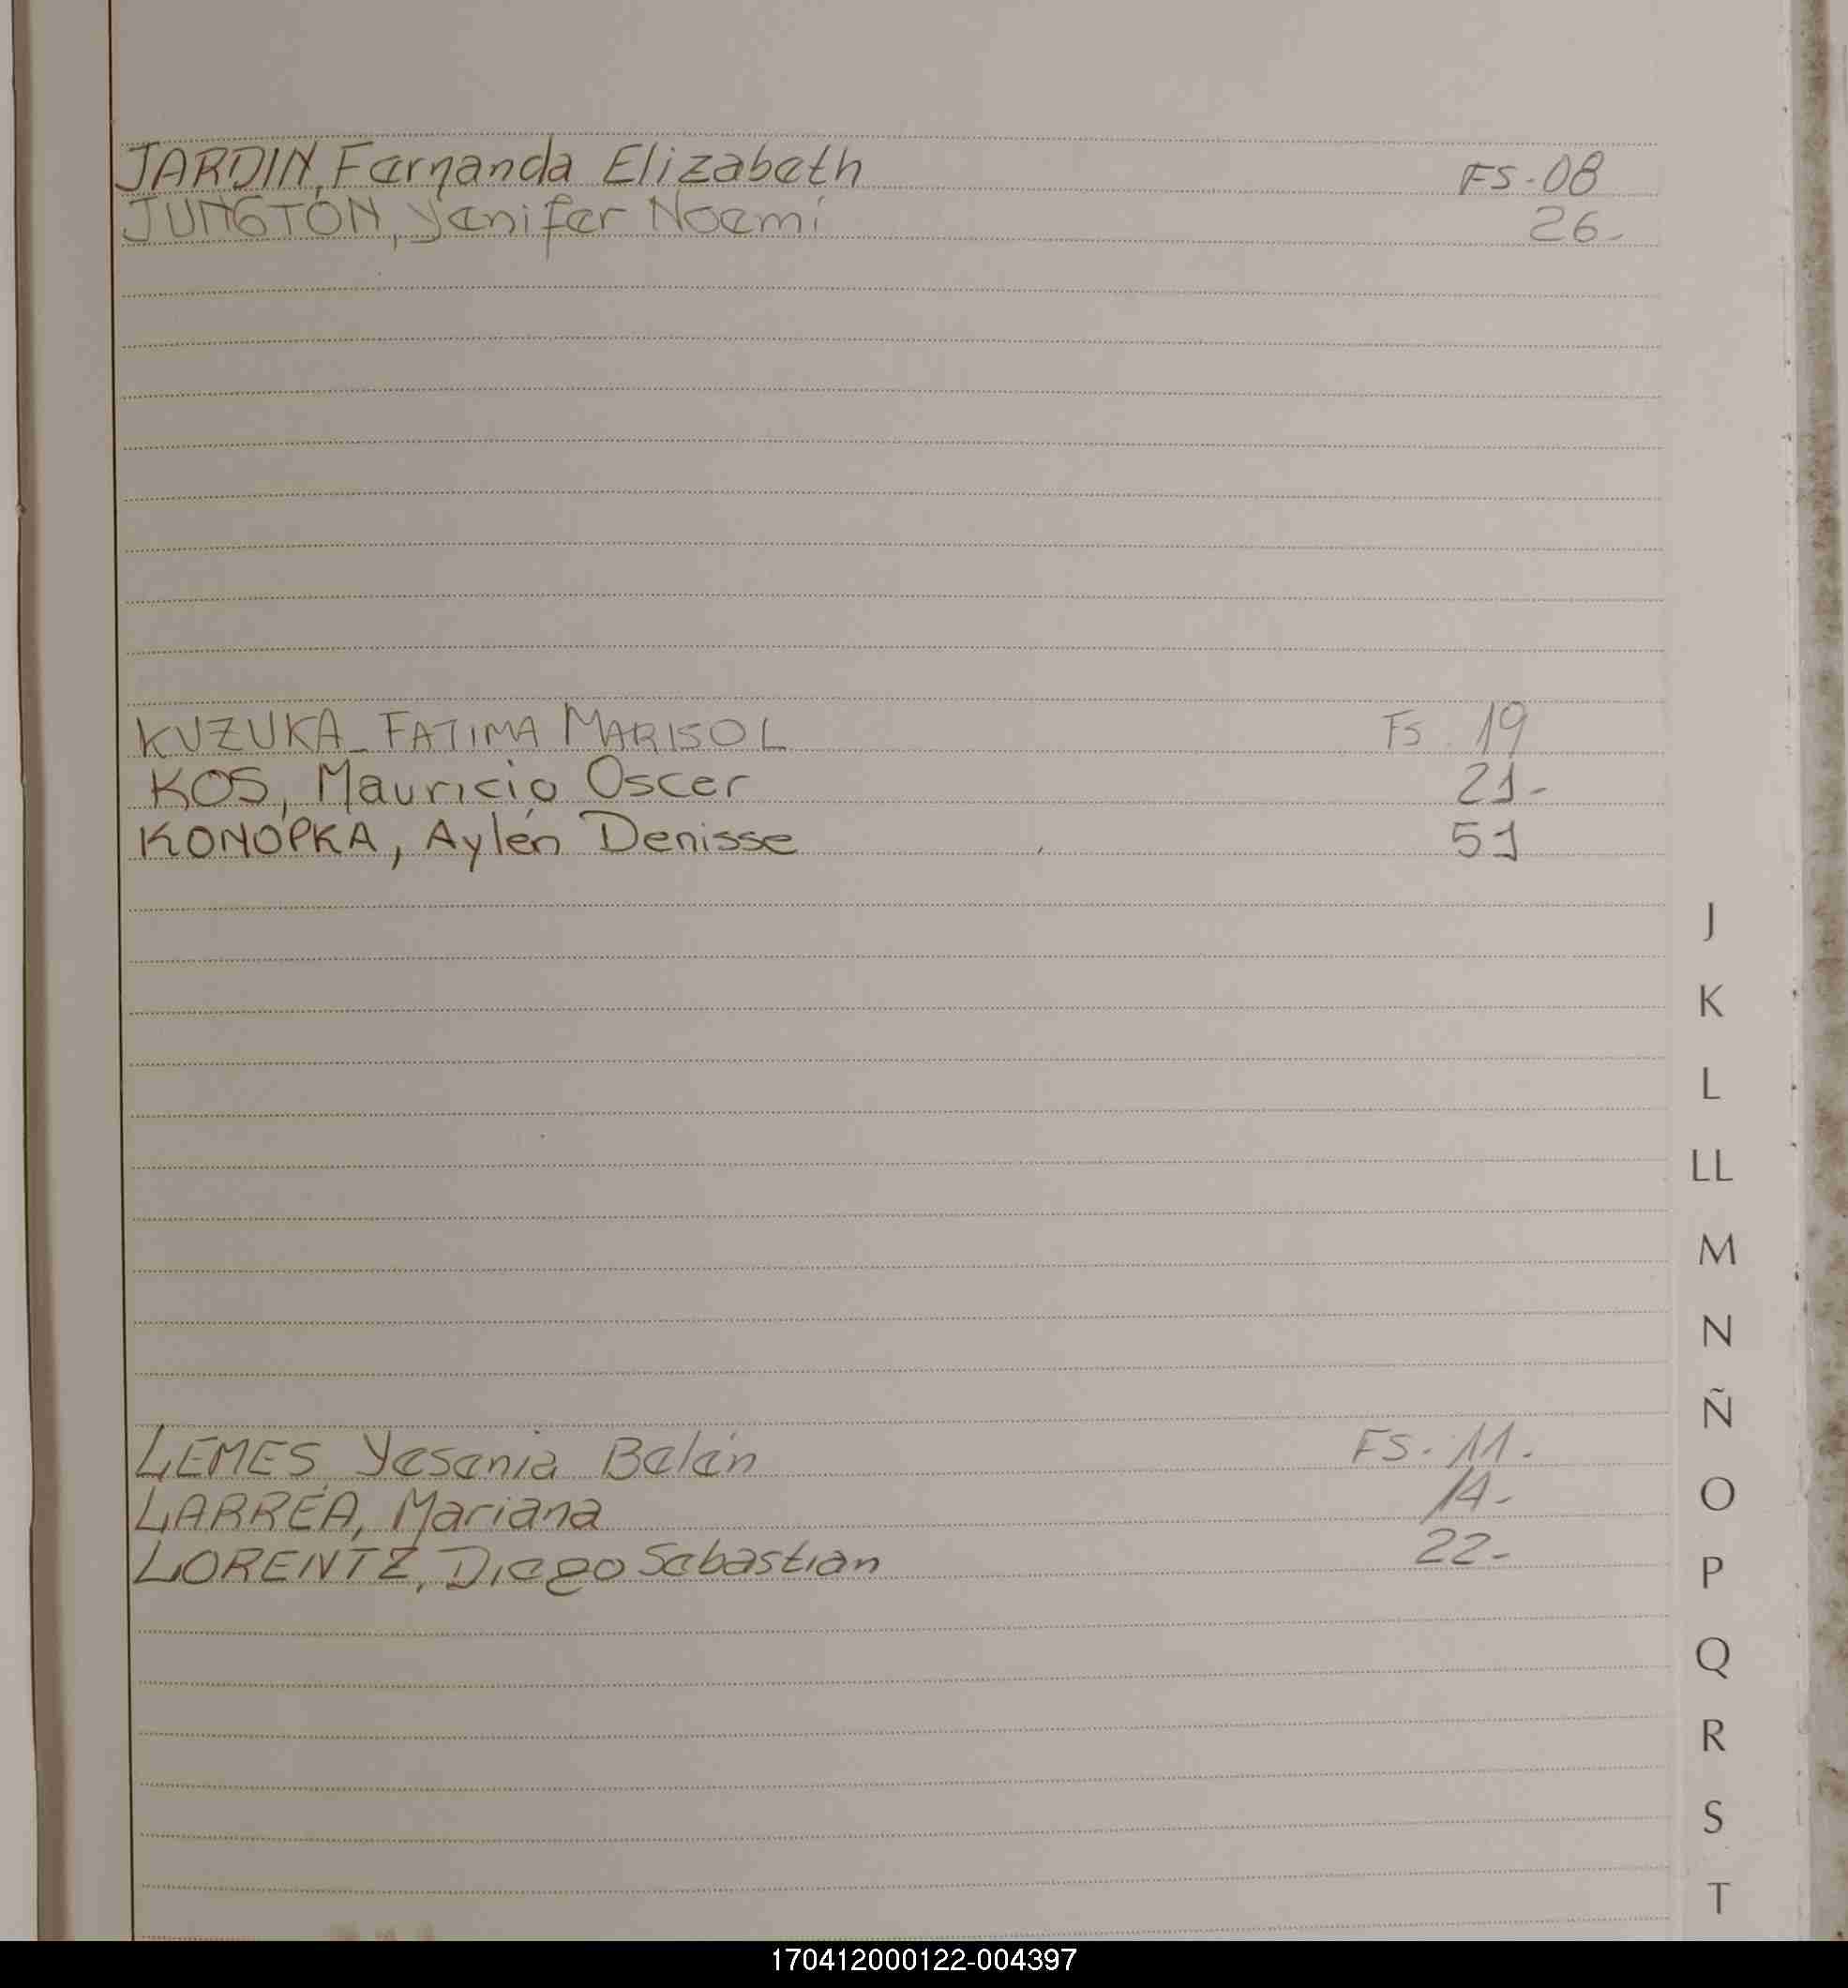 JARDIN, Fernanda Elizabeth FS-08
JUNGTON, Yenifer Noemi 26-
KUZUKA - FATIMA MARISOL FS. 19
KOS, Mauricio Oscar 21-
KONOPKA, Aylén Denisse 51
J
K
L
LL
M
N
Ñ
LEMES, Yesenia Belén FS. 11.
LARREA, Mariana 14-
O
LORENTZ, Diego Sebastian 22-
P
Q
R
S
T
170412000122-004397